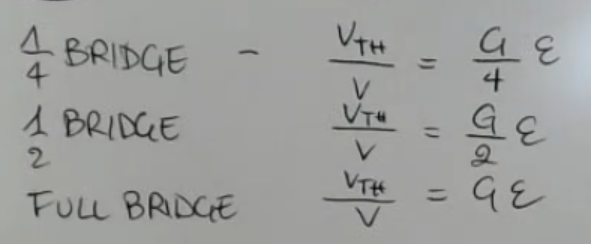 1/4 BRIDGE - V_TH/V = G/4 ε
1/2 BRIDGE V_TH/V = G/2 ε
FULL BRIDGE V_TH/V = Gε